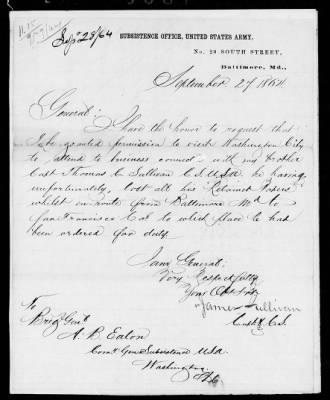 Sept 28/64
SUBSISTENCE OFFICE, UNITED STATES ARMY,
No. 29 SOUTH STREET,
Baltimore, Md.,
September 27 1864
General:
I have the honor to request that
I be granted permission to visit Washington City
to attend to business connected with my brother
Capt Thomas C Sullivan C.S. USA. he having,
unfortunately, lost all his Retained Papers
whilst en route from Baltimore Md to
San Francisco Cal to which place he had
been ordered for duty.
I am General:
Very Respectfully
Your Obt Svt
James Sullivan
To
Brig Genl
A. B. Eaton
Comy Gen Subsistence USA
Washington
D.C.